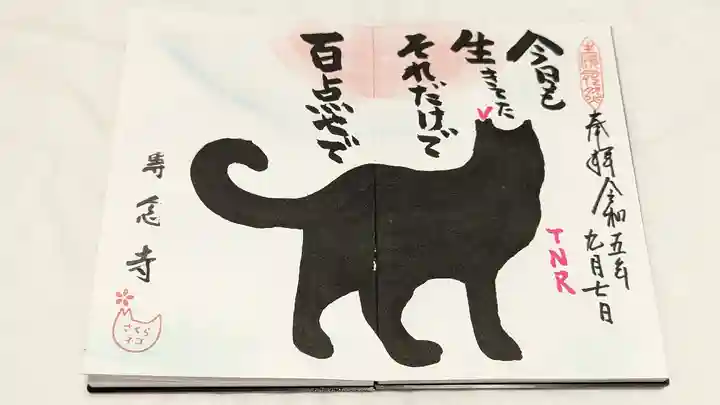 奉拝
令和五年
九月七日
今日も
生きてた
それだけで
百点やで
TNR
専念寺
さくら
ネコ